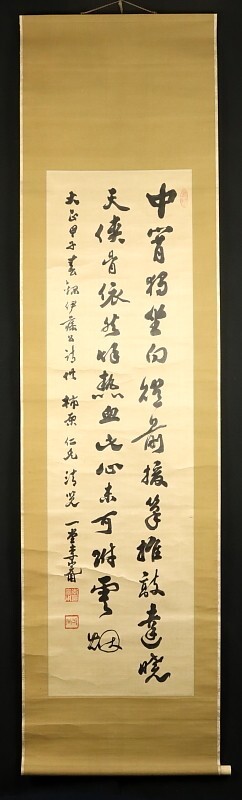 中宵獨坐向燈前援筆推敲達曉
天俠骨依然熱血此心未可附雲烟
大正甲子春錄伊藤公詩供柿原仁兄清覽一堂李完用